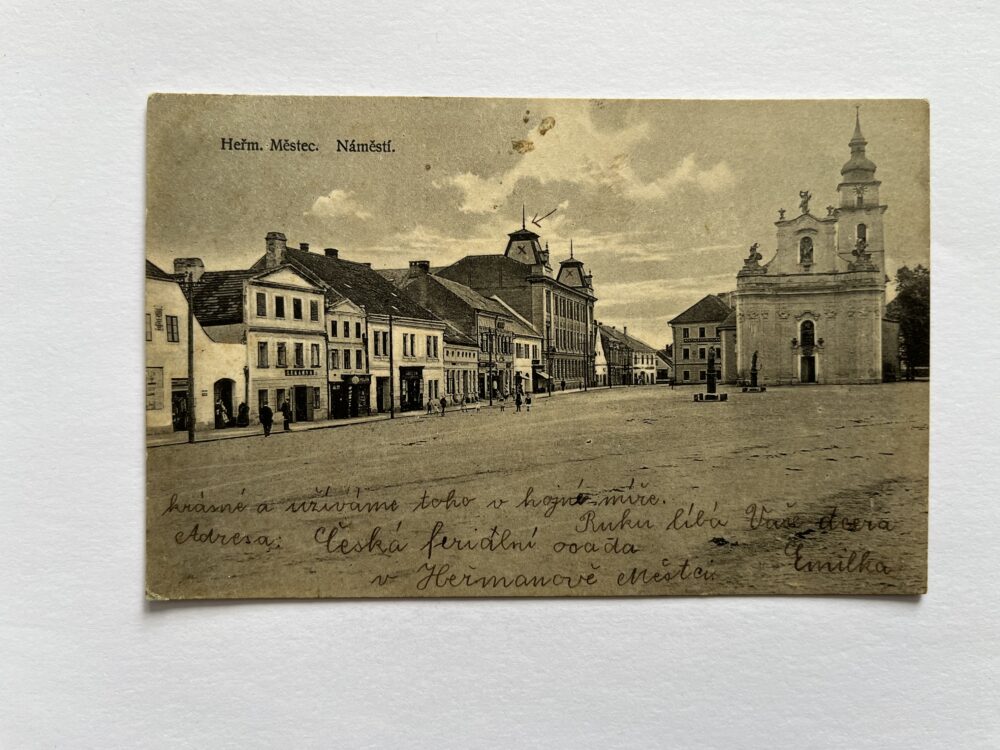 Heřm. Městec. Náměstí.
krásné a užíváme toho v hojné míře.
Ruku líbá Vaše dcera
Adresa: Česká feriální osada
Emilka
v Heřmanově Městci.